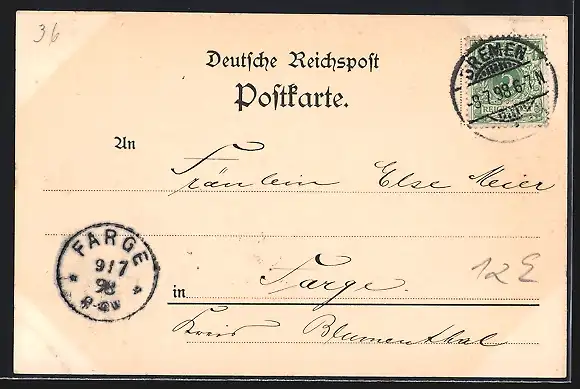 36
Deutsche Reichspost
Postkarte.
BREMEN
-8.7.98.6-7.N
An
Fräulein Else Meier
FARGE
9/7
98
12 E
in Farge.
Kreis Blumenthal